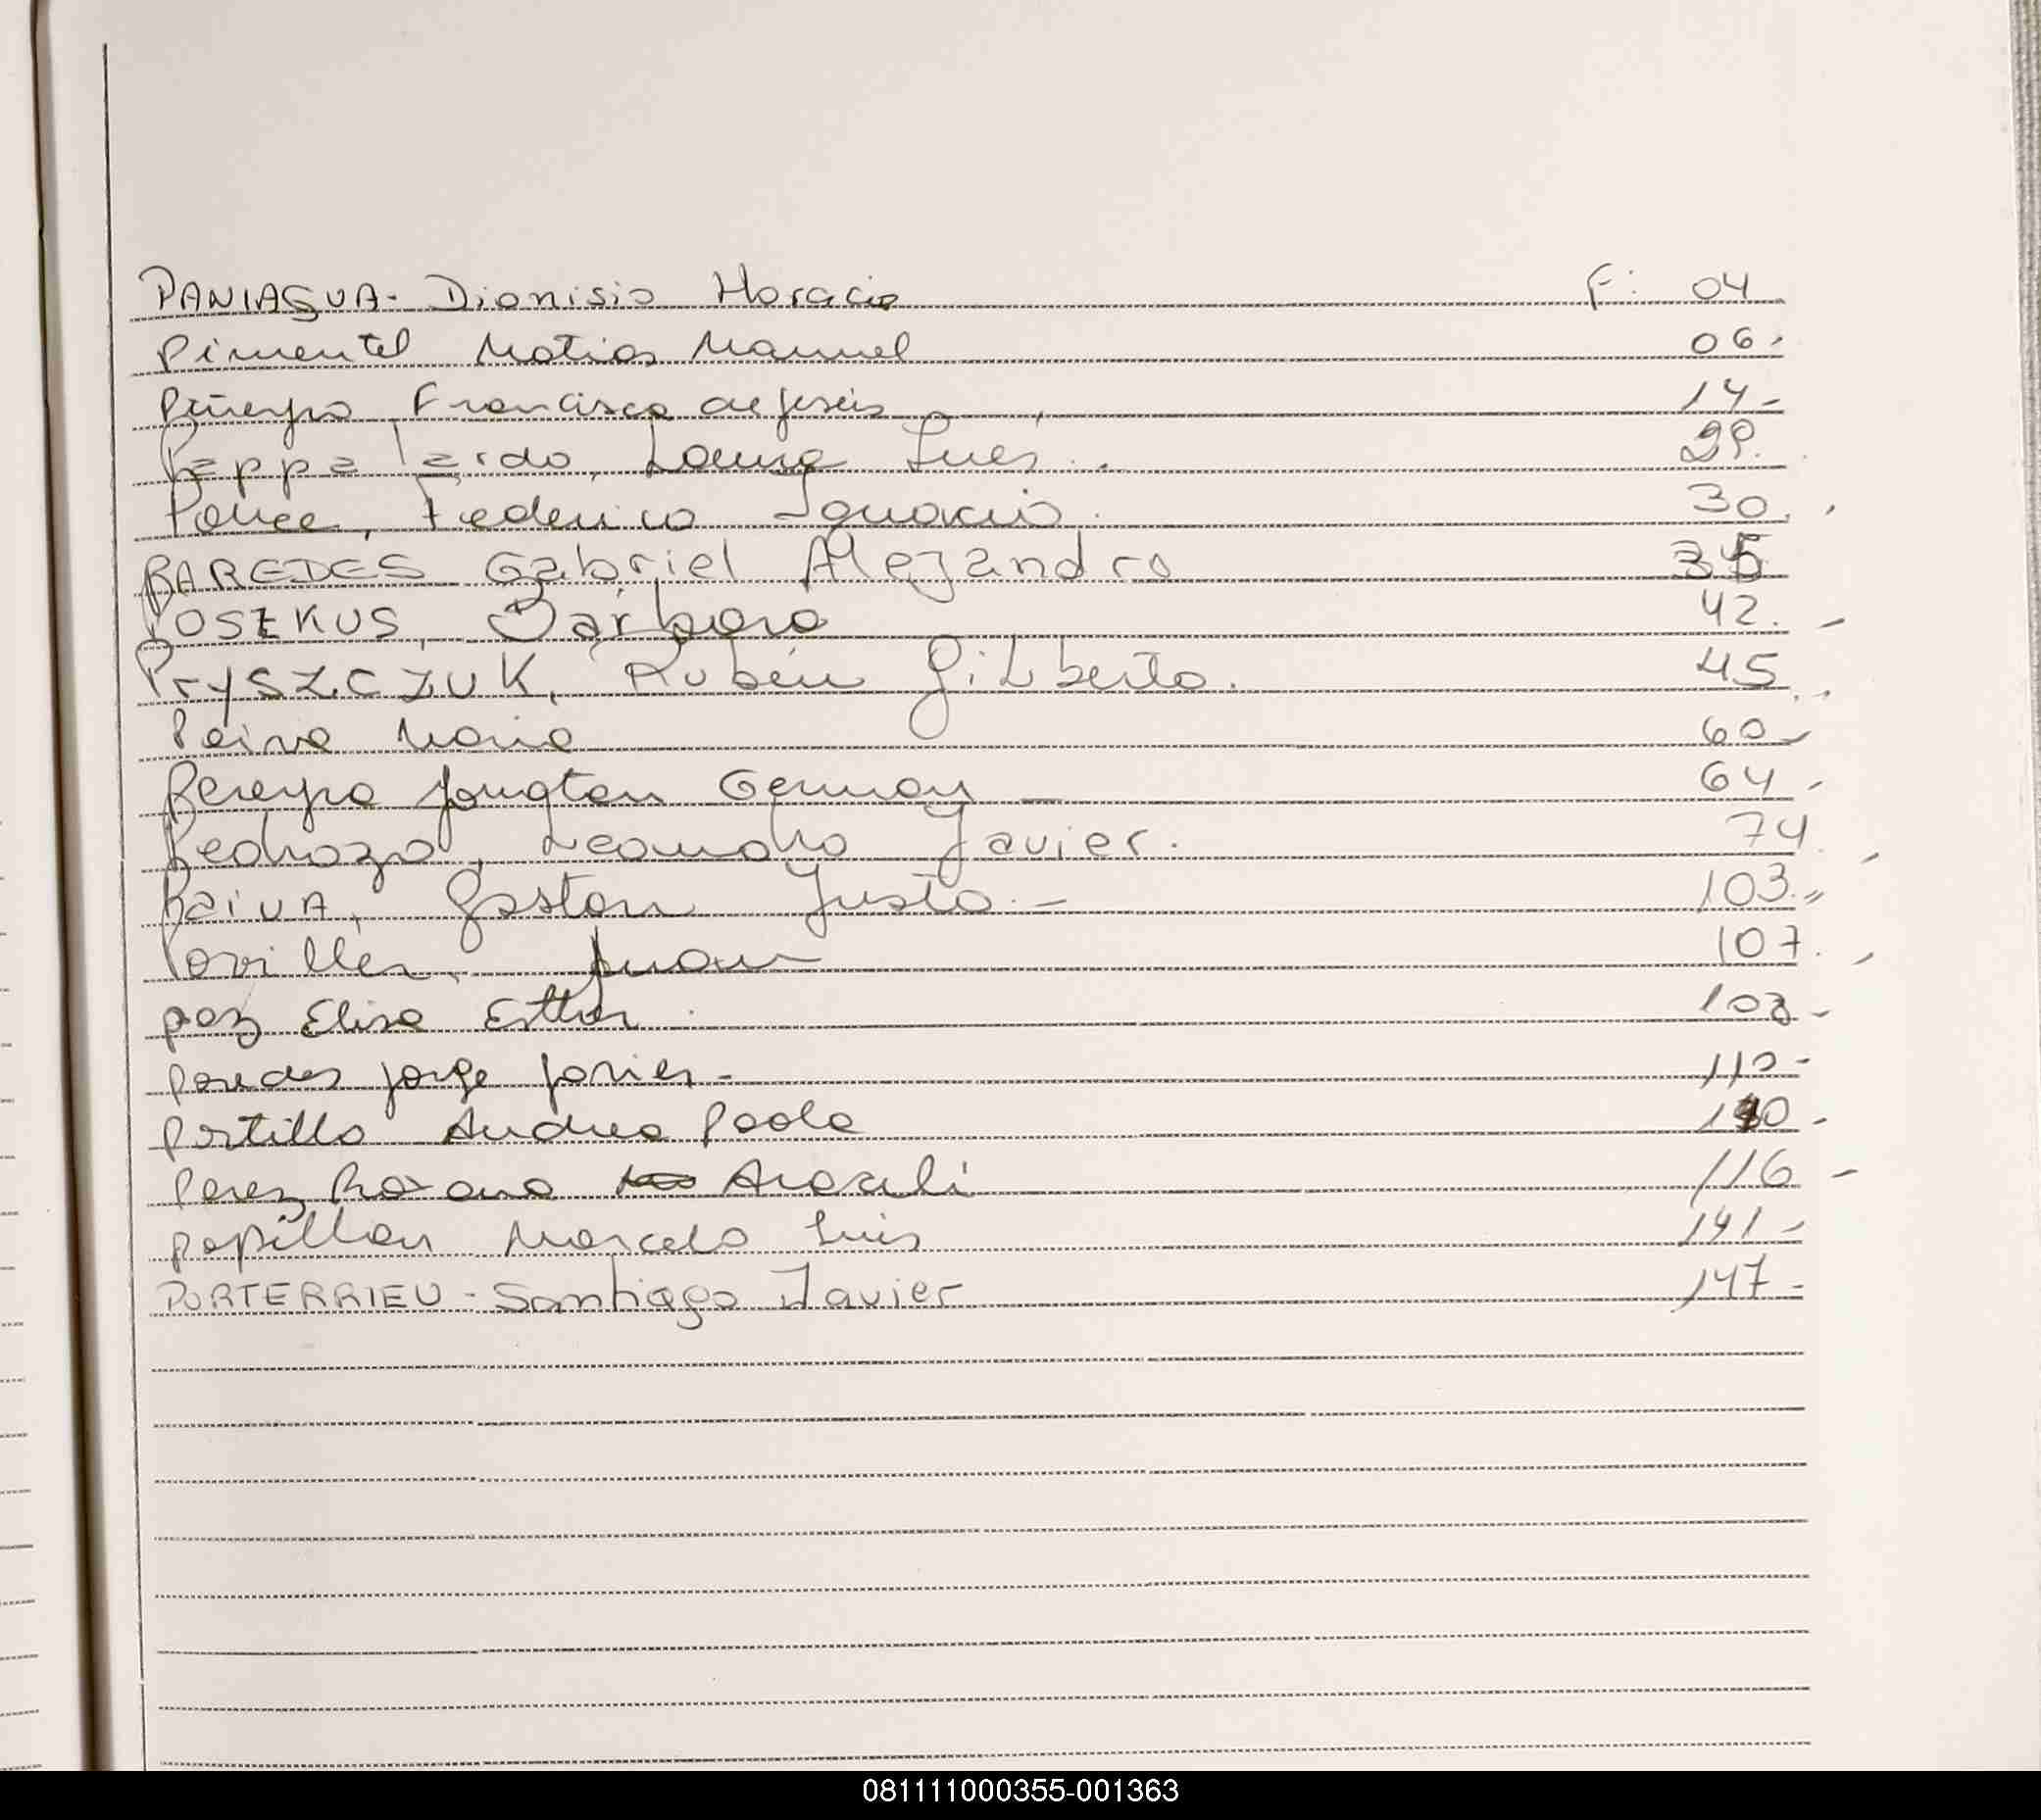 PANIAGUA - Dionisio Horacio F: 04
Pimentel Matias Manuel 06.
Piñeyro Francisco de Jesús 14 -
Pappalardo, Laura Ines. 29.
Ponce, Federico Ignacio. 30.
PAREDES Gabriel Alejandro 35
POSZKUS, Bárbara 42.
PrYSZCZUK, Rubén Gilberto. 45
Paiva Maria 60
Pereyra Jonatan German 64
Pedrozo, Leandro Javier. 74
PaiVA, Gaston Justo. - 103.
Juan 107.
paz Elisa Esther. 108 -
Paredes Jorge Javier - 110 -
Portillo Andrea Paola 110 -
Perez Roxana Araceli 116 -
Papillon Marcelo Luis 141 -
PORTERRIEU - Santiago Javier 147 -
081111000355-001363